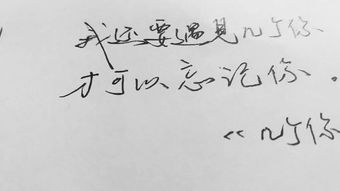 我还要遇见几个你
才可以忘记你。
<<几个你